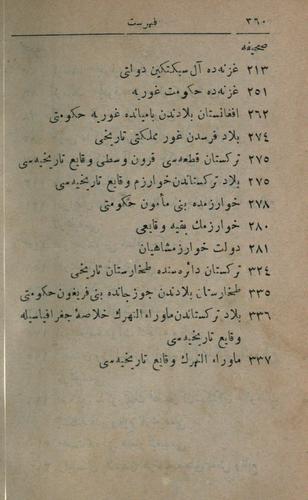 ٣٦٠ فهرست
صحیفه
٢١٣ غزنه‌ده آل سبکتکین دولتی
٢٥١ غزنه‌ده حکومت غوریه
٢٦٢ افغانستان بلادندن بامیانده غوریه حکومتی
٢٧٤ بلاد فرسدن غور مملکتی تاریخی
٢٧٥ ترکستان قطعه‌سی قرون وسطی وقایع تاریخیه‌سی
٢٧٥ بلاد ترکستاندن خوارزم وقایع تاریخیه‌سی
٢٧٨ خوارزمده بنی مأمون حکومتی
٢٨٠ خوارزمك بقیه وقایعی
٢٨١ دولت خوارزمشاهیان
٣٢٤ ترکستان دائره‌سنده طخارستان تاریخی
٣٣٥ طخارستان بلادندن جوزجانده بنی فریغون حکومتی
٣٣٦ بلاد ترکستاندن ماوراء النهرك خلاصهٔ جغرافیاسیله
وقایع تاریخیه‌سی
٣٣٧ ماوراء النهرك وقایع تاریخیه‌سی